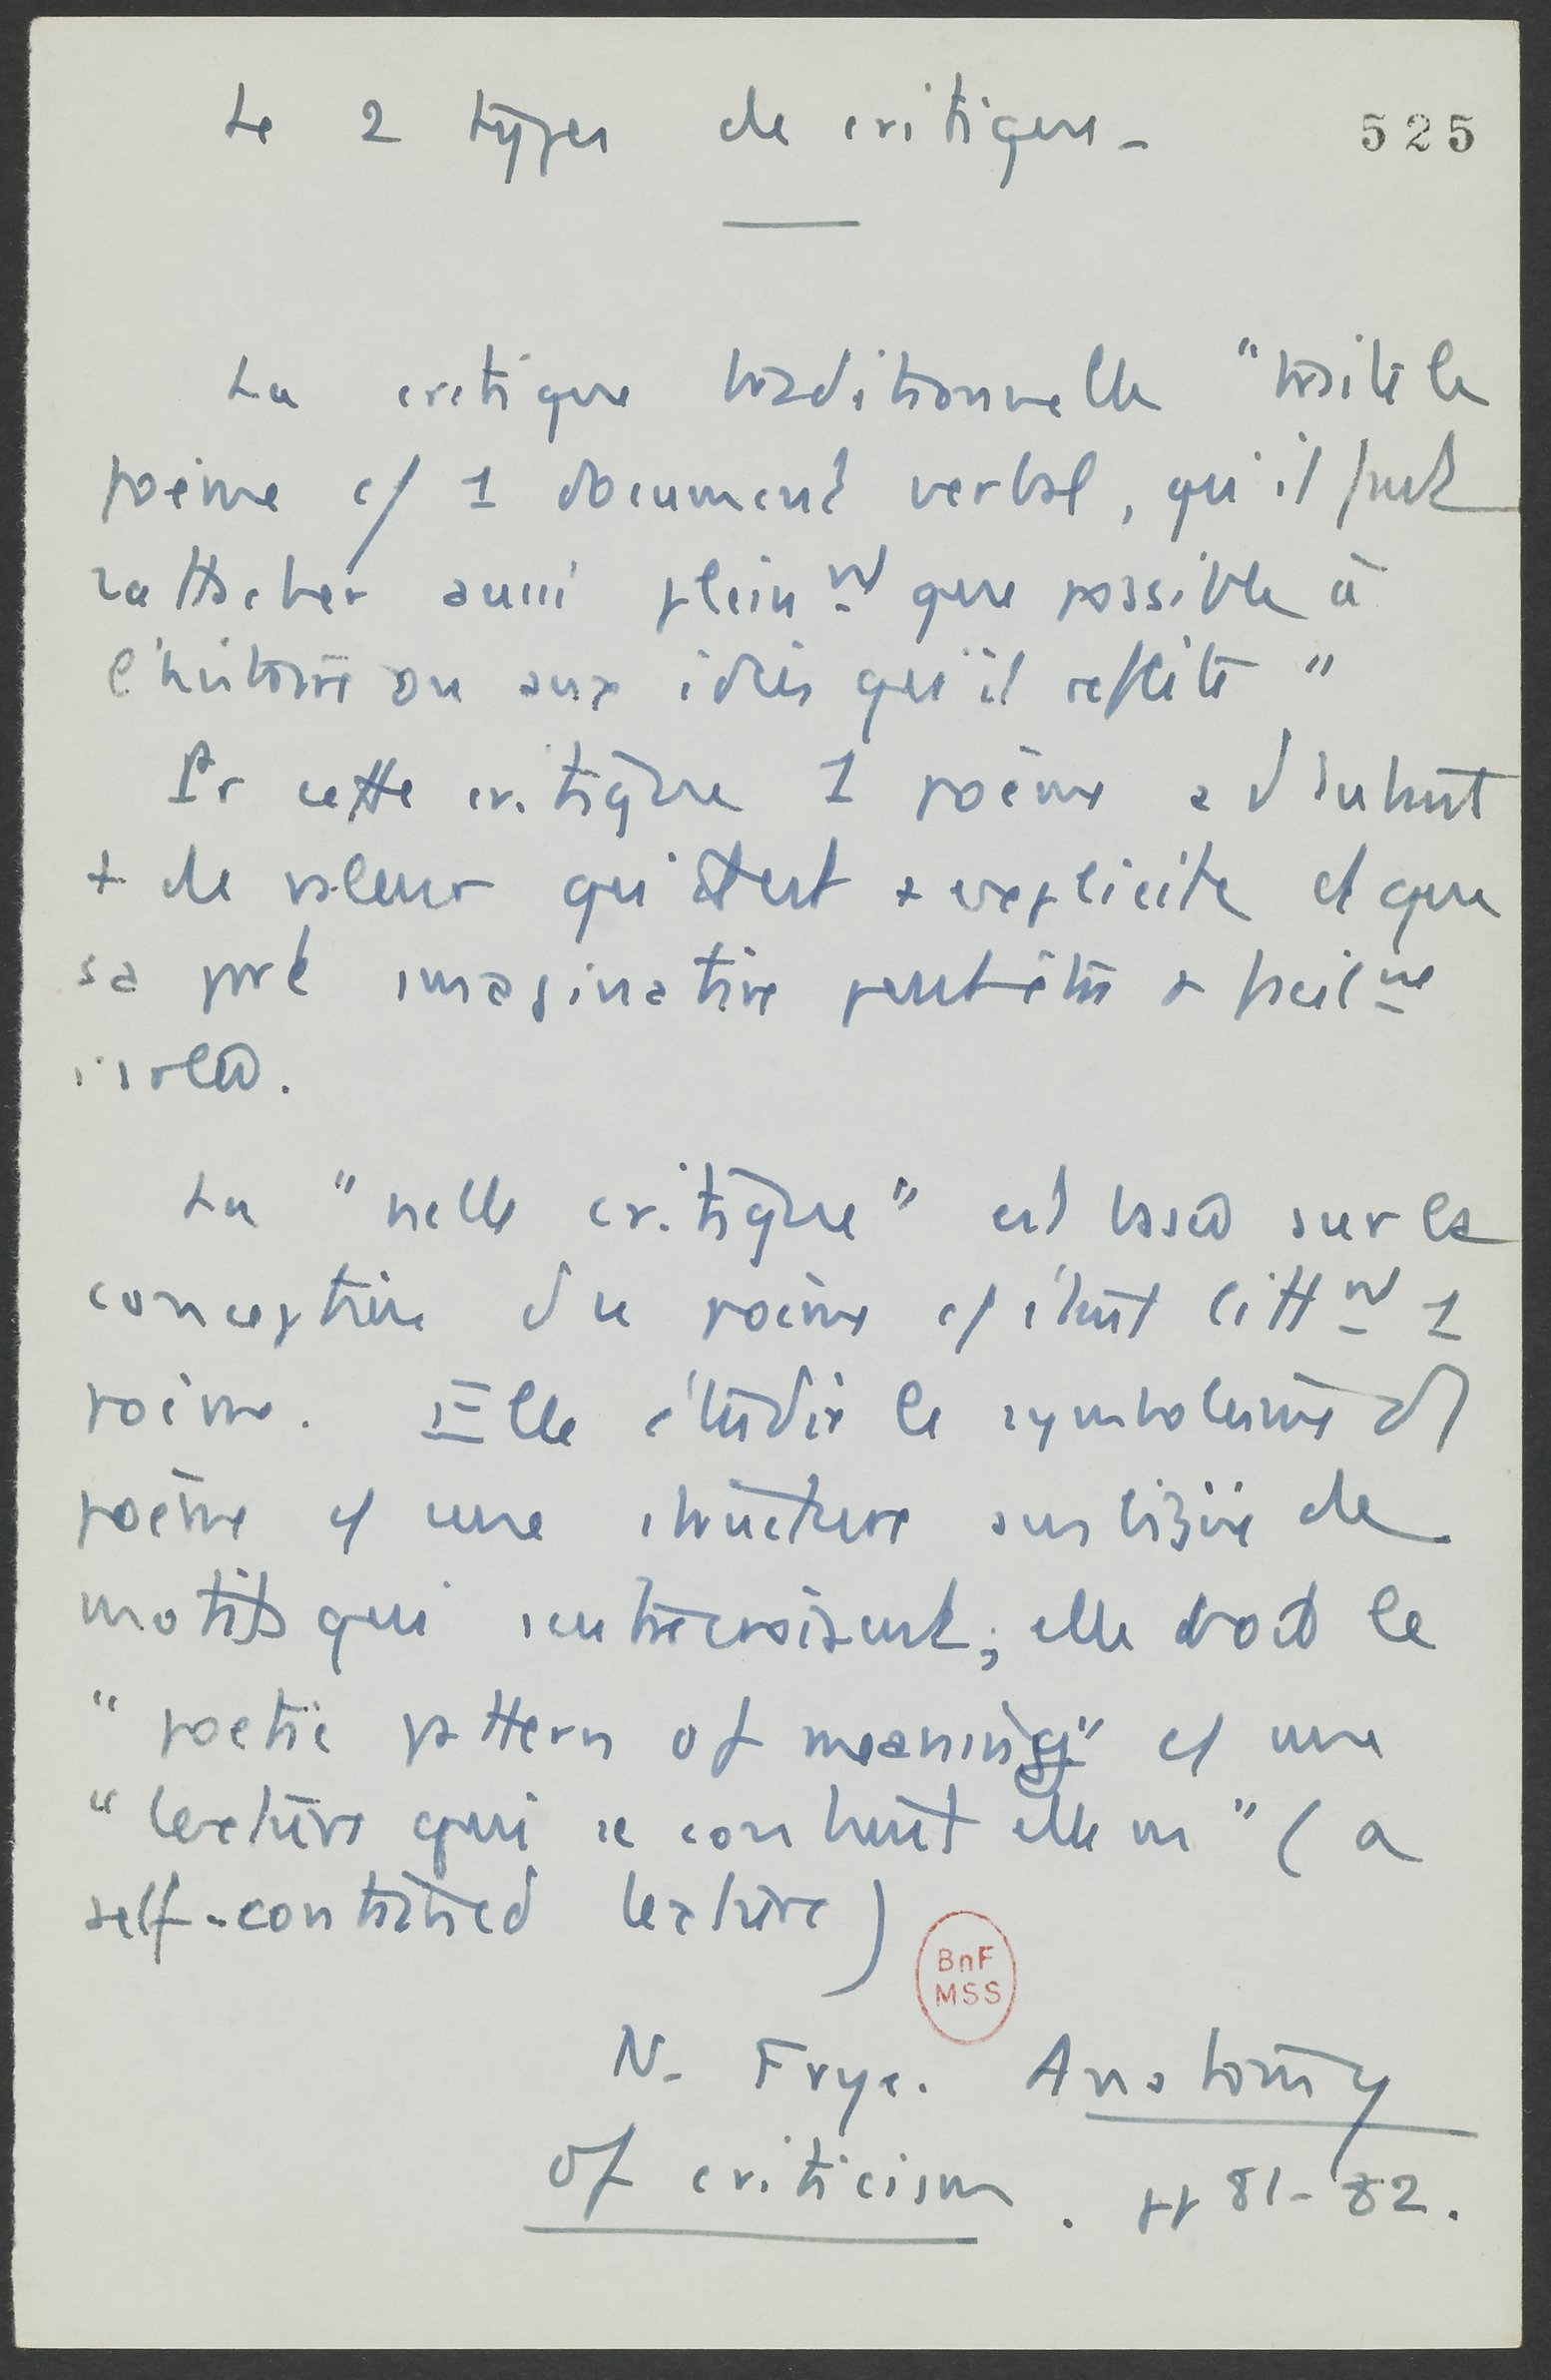 Les 2 types de critiques -
525
La critique traditionnelle "traite le
poème c/ 1 document verbal, qu'il faut
rattacher aussi plein nt que possible à
l'histoire ou aux idées qu'il reflète"
Pr cette critique 1 poème a d'autant
+ de valeur qu'il est + explicite et que
sa pré imaginative peut être + facil nt
isolée.
La "nelle critique" est basée sur la
conception du poème c/ étant litt nt 1
poème. Elle étudie le symbolisme d'1
poème c/ une structure ambigüe de
motifs qui s'entrecroisent; elle voit le
"poetic pattern of meaning" c/ une
"texture qui se contient elle m" (a
self-contained texture)
BnF
MSS
N. Frye. Anatomy
of criticism. pp 81-82.